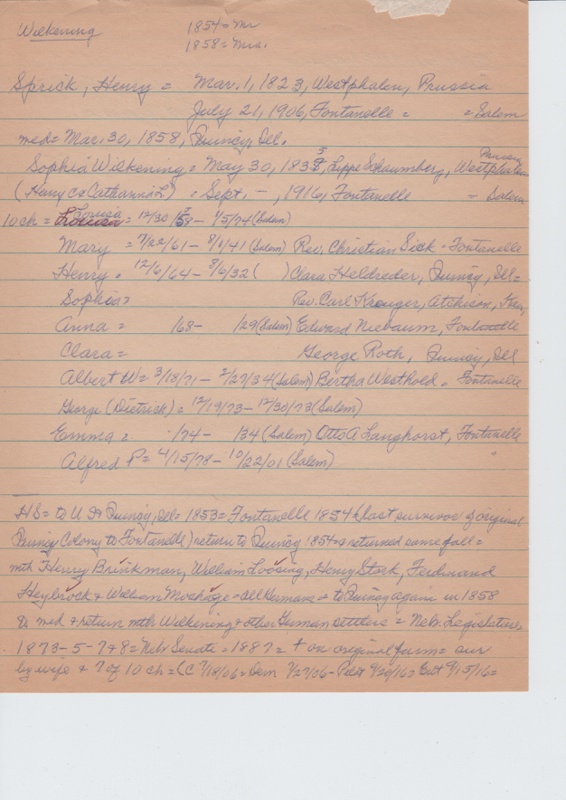 Wilkening 1854 = Mr
1858 = Mrs.
Sprick, Henry = Mar. 1, 1823, Westphalen, Prussia
July 21, 1906, Fontanelle = = Salem
med = Mar. 30, 1858, Quincy, Ill.
Sophia Wilkening = May 30, 1838, Lippe Schaumberg, Westphalen Prussia
(Henry C & Catharina L) = Sept. -, 1916, Fontanelle - Salem
10 ch = Louisa = 12/30/58 - 1/5/74 (Salem)
Mary = 7/22/61 - 8/1/41 (Salem) Rev. Christian Sick - Fontanelle
Henry = 12/6/64 - 8/6/32 ( ) Clara Heldreder, Quincy, Ill =
Sophia = Rev. Carl Krueger, Atchison,
Anna = /68 - /29 (Salem) Edward Niebaum, Fontanelle
Clara = George Roth, Quincy, Ill
Albert W = 3/18/71 - 2/27/34 (Salem) Bertha Westhold = Fontanelle
George (Dietrick) = 12/19/73 - 12/30/73 (Salem)
Emma = /74 - /34 (Salem) Otto A Langhorst, Fontanelle
Alfred P = 4/15/78 - 10/22/01 (Salem) "
HS = to U S & Quincy, Ill = 1853 = Fontanelle 1854 (last survivor of original
Quincy Colony to Fontanelle) return to Quincy 1854 & returned same fall =
mth Henry Brinkman, William Loosing, Henry Stork, Ferdinand
Heybrock & William Moshage - all Germans = to Quincy again in 1858
& med & return mth Wilkening & other German settlers = Nebr. Legislature,
1873-5-7 & 8 = Nebr Senate = 1887 = + on original farm = sur
by wife & 7 of 10 ch = (C 7/18/06 = Dem 7/27/06 - Pilot 9/20/16 = Ent 9/15/16 =